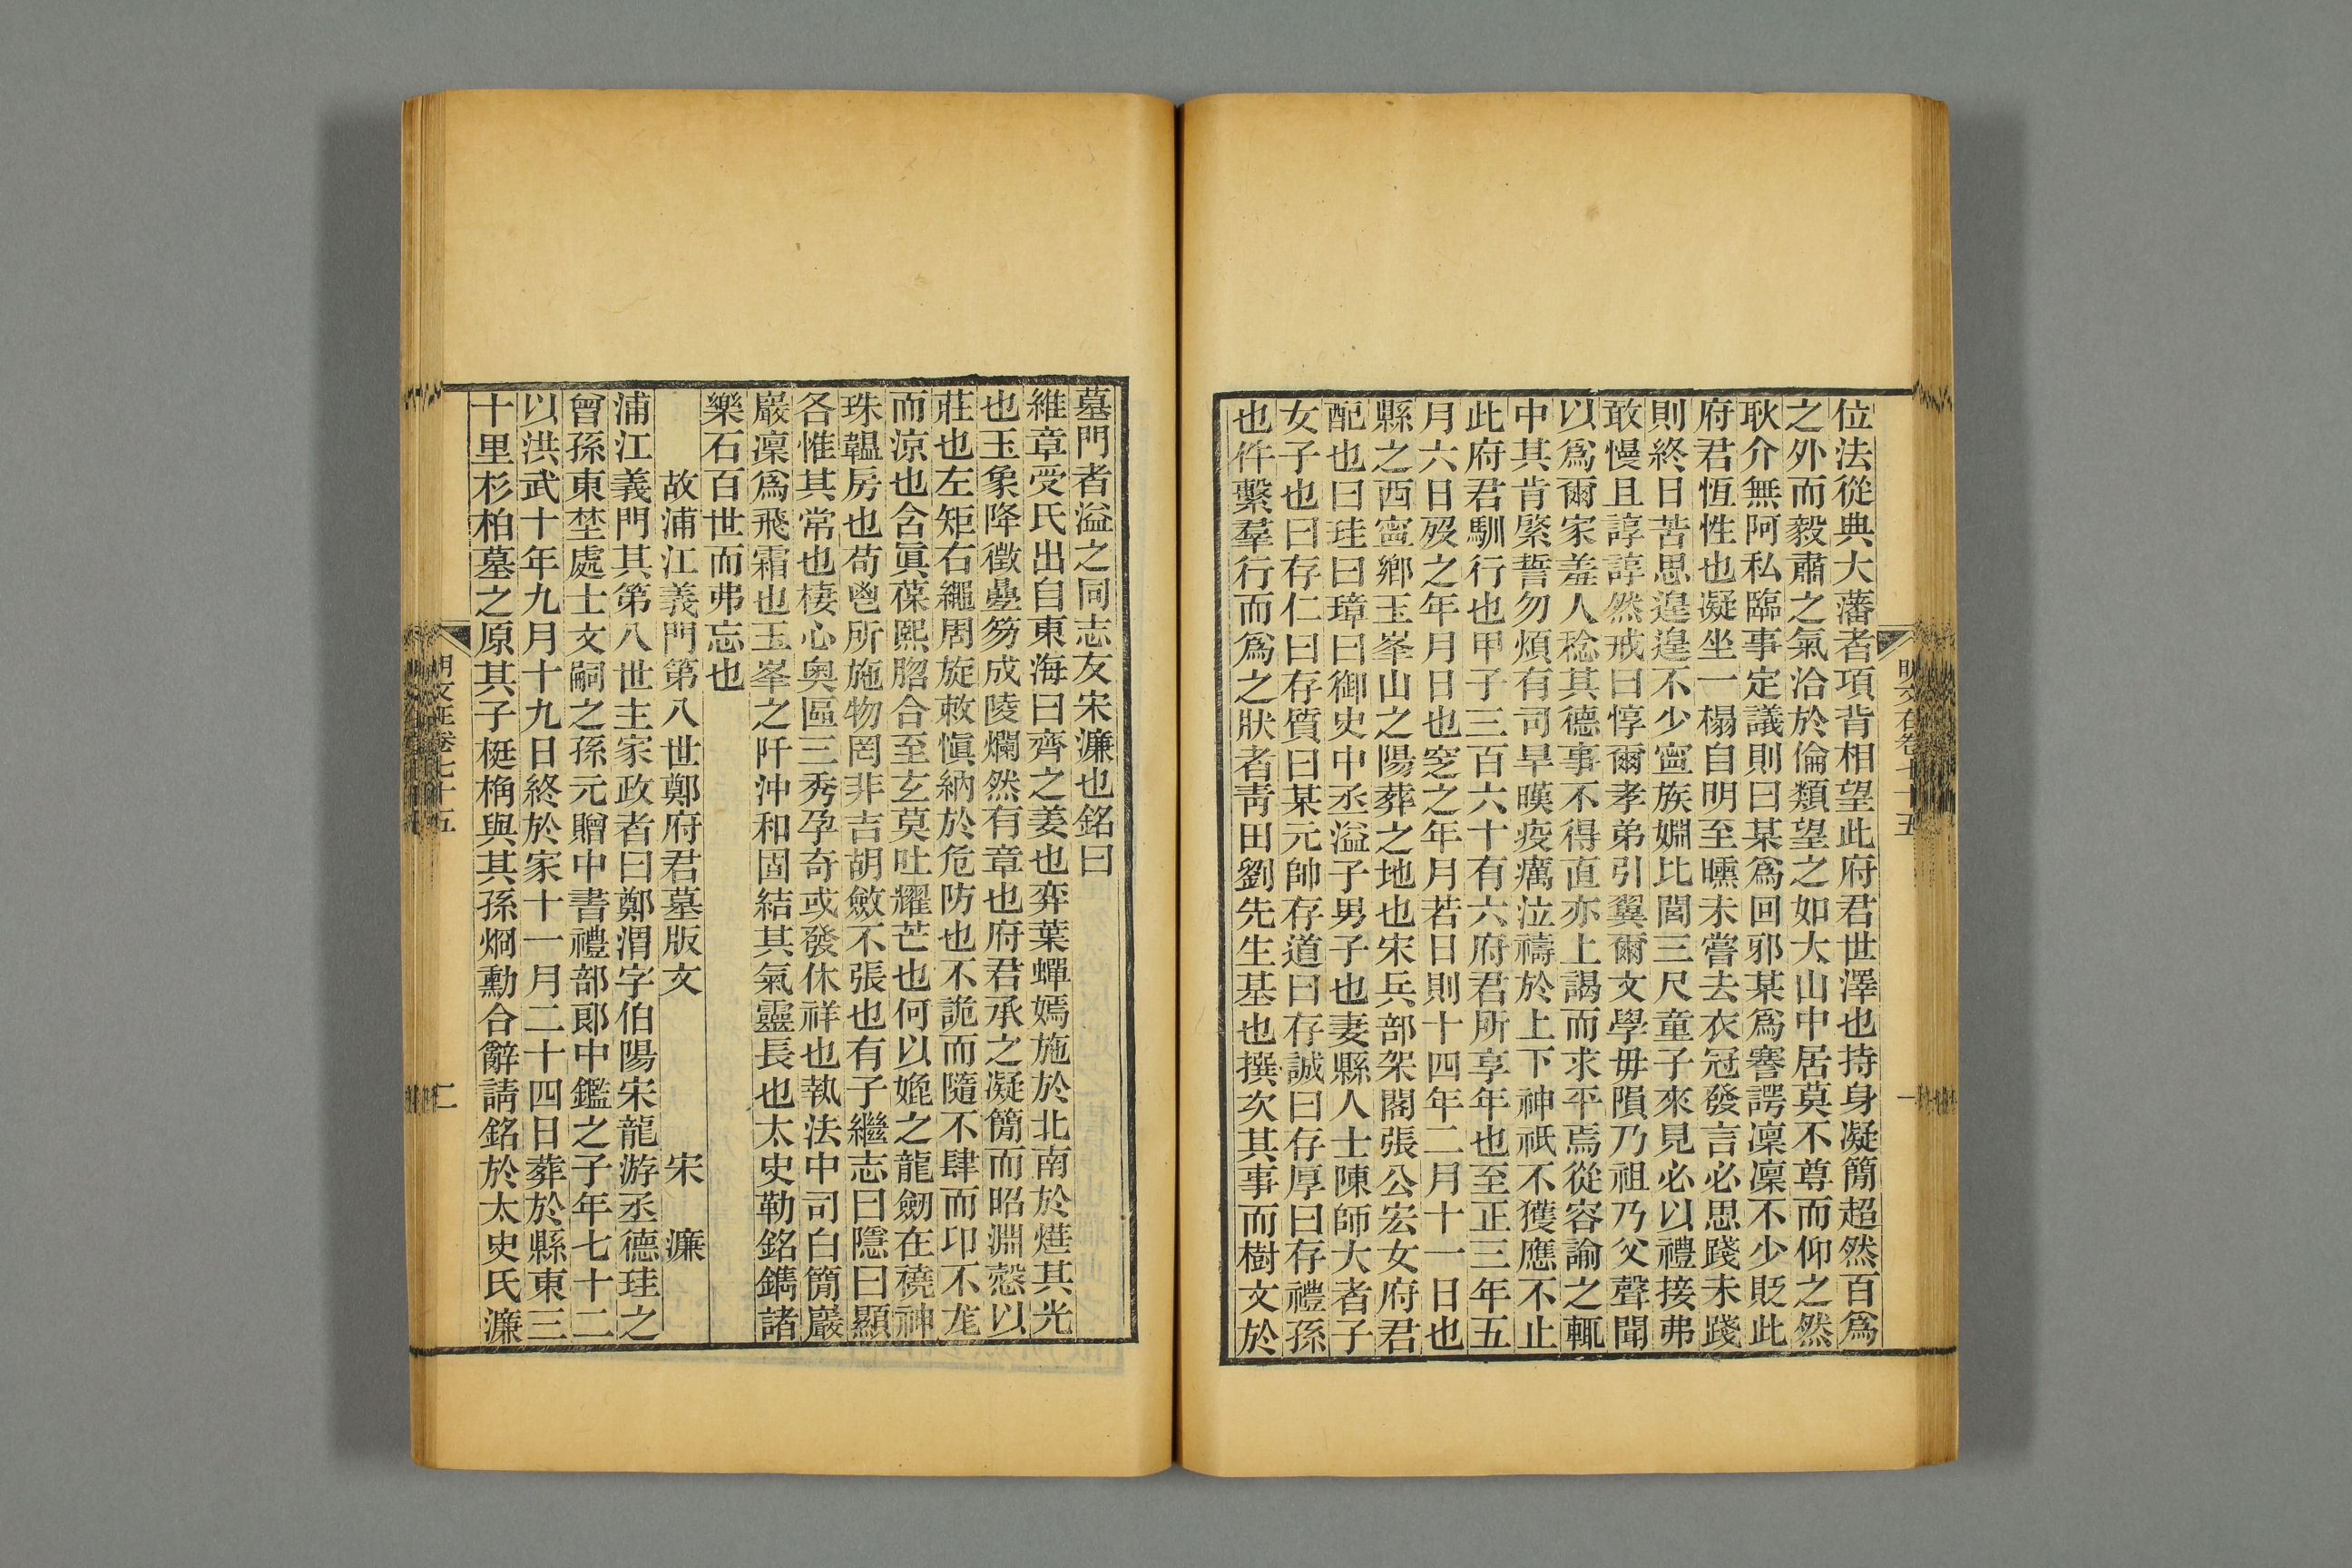 位法從典大藩者項背相望此府君世澤也持身凝簡超然百爲
之外而毅肅之氣洽於倫類望之如大山中居莫不尊而仰之然
耿介無阿私臨事定議則曰某爲回邪某爲謇諤凜凜不少貶此
府君恆性也凝坐一榻自明至曛未嘗去衣冠發言必思踐未踐
則終日苦思遑遑不少寧族姻比閭三尺童子來見必以禮接弗
敢慢且諄諄然戒曰惇爾孝弟引翼爾文學毋隕乃祖乃父聲聞
以爲爾家羞人稔其德事不得直亦上謁而求平焉從容諭之輒
中其肯綮誓勿煩有司旱暵疫癘泣禱於上下神祇不獲應不止
此府君馴行也甲子三百六十有六府君所享年也至正三年五
月六日歿之年月日也窆之年月若日則十四年二月十一日也
縣之西寧鄉玉峯山之陽葬之地也宋兵部架閣張公宏女府君
配也曰珪曰璋曰御史中丞溢子男子也妻縣人士陳師大者子
女子也曰存仁曰存質曰某元帥存道曰存誠曰存厚曰存禮孫
也件繫羣行而爲之狀者靑田劉先生基也撰次其事而樹文於
明文在卷七十五
一
墓門者溢之同志友宋濂也銘曰
維章受氏出自東海曰齊之姜也弈葉蟬嫣施於北南於燁其光
也玉象降徵疊笏成陵爛然有章也府君承之凝簡而昭淵愨以
莊也左矩右繩周旋敕愼納於危防也不詭而隨不肆而卬不尨
而涼也含眞葆熙脗合至玄莫吐耀芒也何以婏之龍劒在襓神
珠韞房也苟鬯所施物罔非吉胡斂不張也有子繼志曰隱曰顯
各惟其常也棲心奧區三秀孕奇或發休祥也執法中司白簡嚴
嚴凜爲飛霜也玉峯之阡沖和固結其氣靈長也太史勒銘鐫諸
樂石百世而弗忘也
故浦江義門第八世鄭府君墓版文 宋濂
浦江義門其第八世主家政者曰鄭渭字伯陽宋龍游丞德珪之
曾孫東埜處士文嗣之孫元贈中書禮部郞中鑑之子年七十二
以洪武十年九月十九日終於家十一月二十四日葬於縣東三
十里杉柏墓之原其子梃桷與其孫烱勳合辭請銘於太史氏濂
明文在卷七十五
二